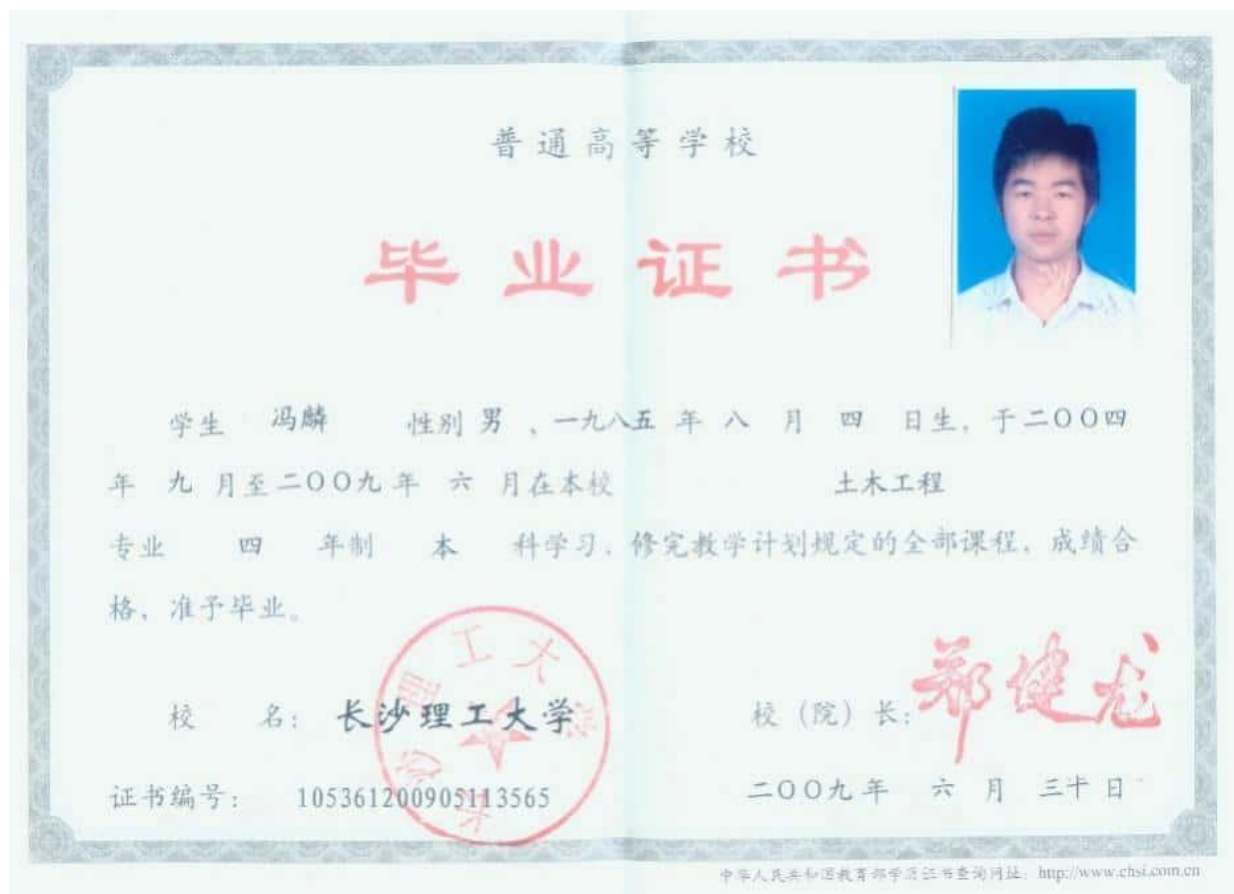 普通高等学校
毕业证书
学生 冯麟 性别 男 、一九八五 年 八 月 四 日生，于二〇〇四
年 九 月至二〇〇九年 六 月在本校 土木工程
专业 四 年制 本 科学习、修完教学计划规定的全部课程，成绩合
格，准予毕业。
校 名：长沙理工大学
校（院）长：郑健龙
长沙理工大学
证书编号： 105361200905113565
二〇〇九年 六 月 三十 日
中华人民共和国教育部学历证书查询网址：http://www.chsi.com.cn